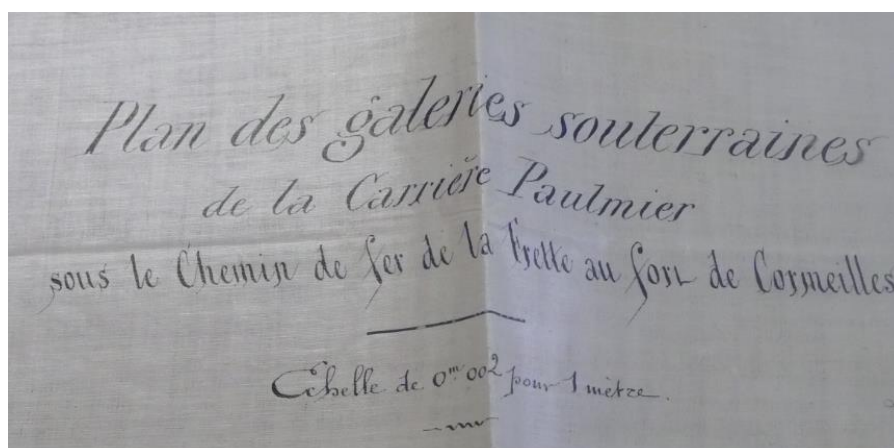 Plan des galeries souterraines
de la Carrière Paulmier
sous le Chemin de fer de la Frette au fort de Cormeilles
Echelle de 0m 002 pour 1 mètre.